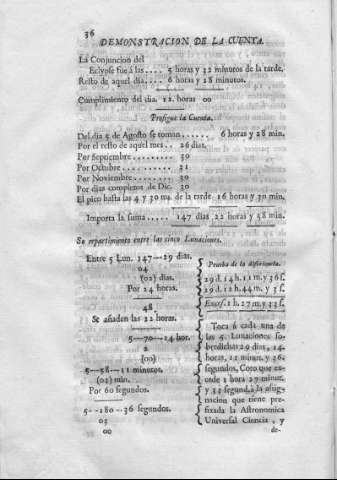 36
DEMONSTRACION DE LA CUENTA.
La Conjuncion del
Eclypse fue á las.... 5 horas y 32 minutos de la tarde.
Resto de aquel dia.... 6 horas y 28 minutos.
Cumplimiento del dia. 12. horas 00
Prosigue la Cuenta.
Del dia 5 de Agosto se toman...... 6 horas y 28 min.
Por el resto de aquel mes.. 26 dias.
Por Septiembre.......... 30
Por Octubre............ 31
Por Noviembre.......... 30
Por dias completos de Dic. 30
El pico hasta las 4 y 30 ms. de la tarde 16 horas y 30 min.
Importa la suma..... 147 dias 22 horas y 58 min.
Su repartimiento entre las cinco Lunaciones.
Entre 5 Lun. 147--29 dias.
04
(02) dias.
Por 24 horas.
48
Se añaden las 22 horas.
5--70--14 hor.
2
(00)
5--58--11 minutos.
(03) min.
Por 60 segundos.
5--180--36 segundos.
03
00
Prueba de la diferencia.
29 d. 14 h. 11 m. y 36 s.
29 d. 12 h. 44 m. y 3 s.
Exces. 1 h. 27 m. y 33 s.
Toca á cada una de
las 5. Lunaciones so-
bredichas 29 dias, 14.
horas, 11 minut. y 36.
segundos, Coto que ex-
cede 1 hora 27 minut.
y 33 segund. à la asig-
nacion que tiene pre-
fixada la Astronomica
Universal Ciencia, y
de-